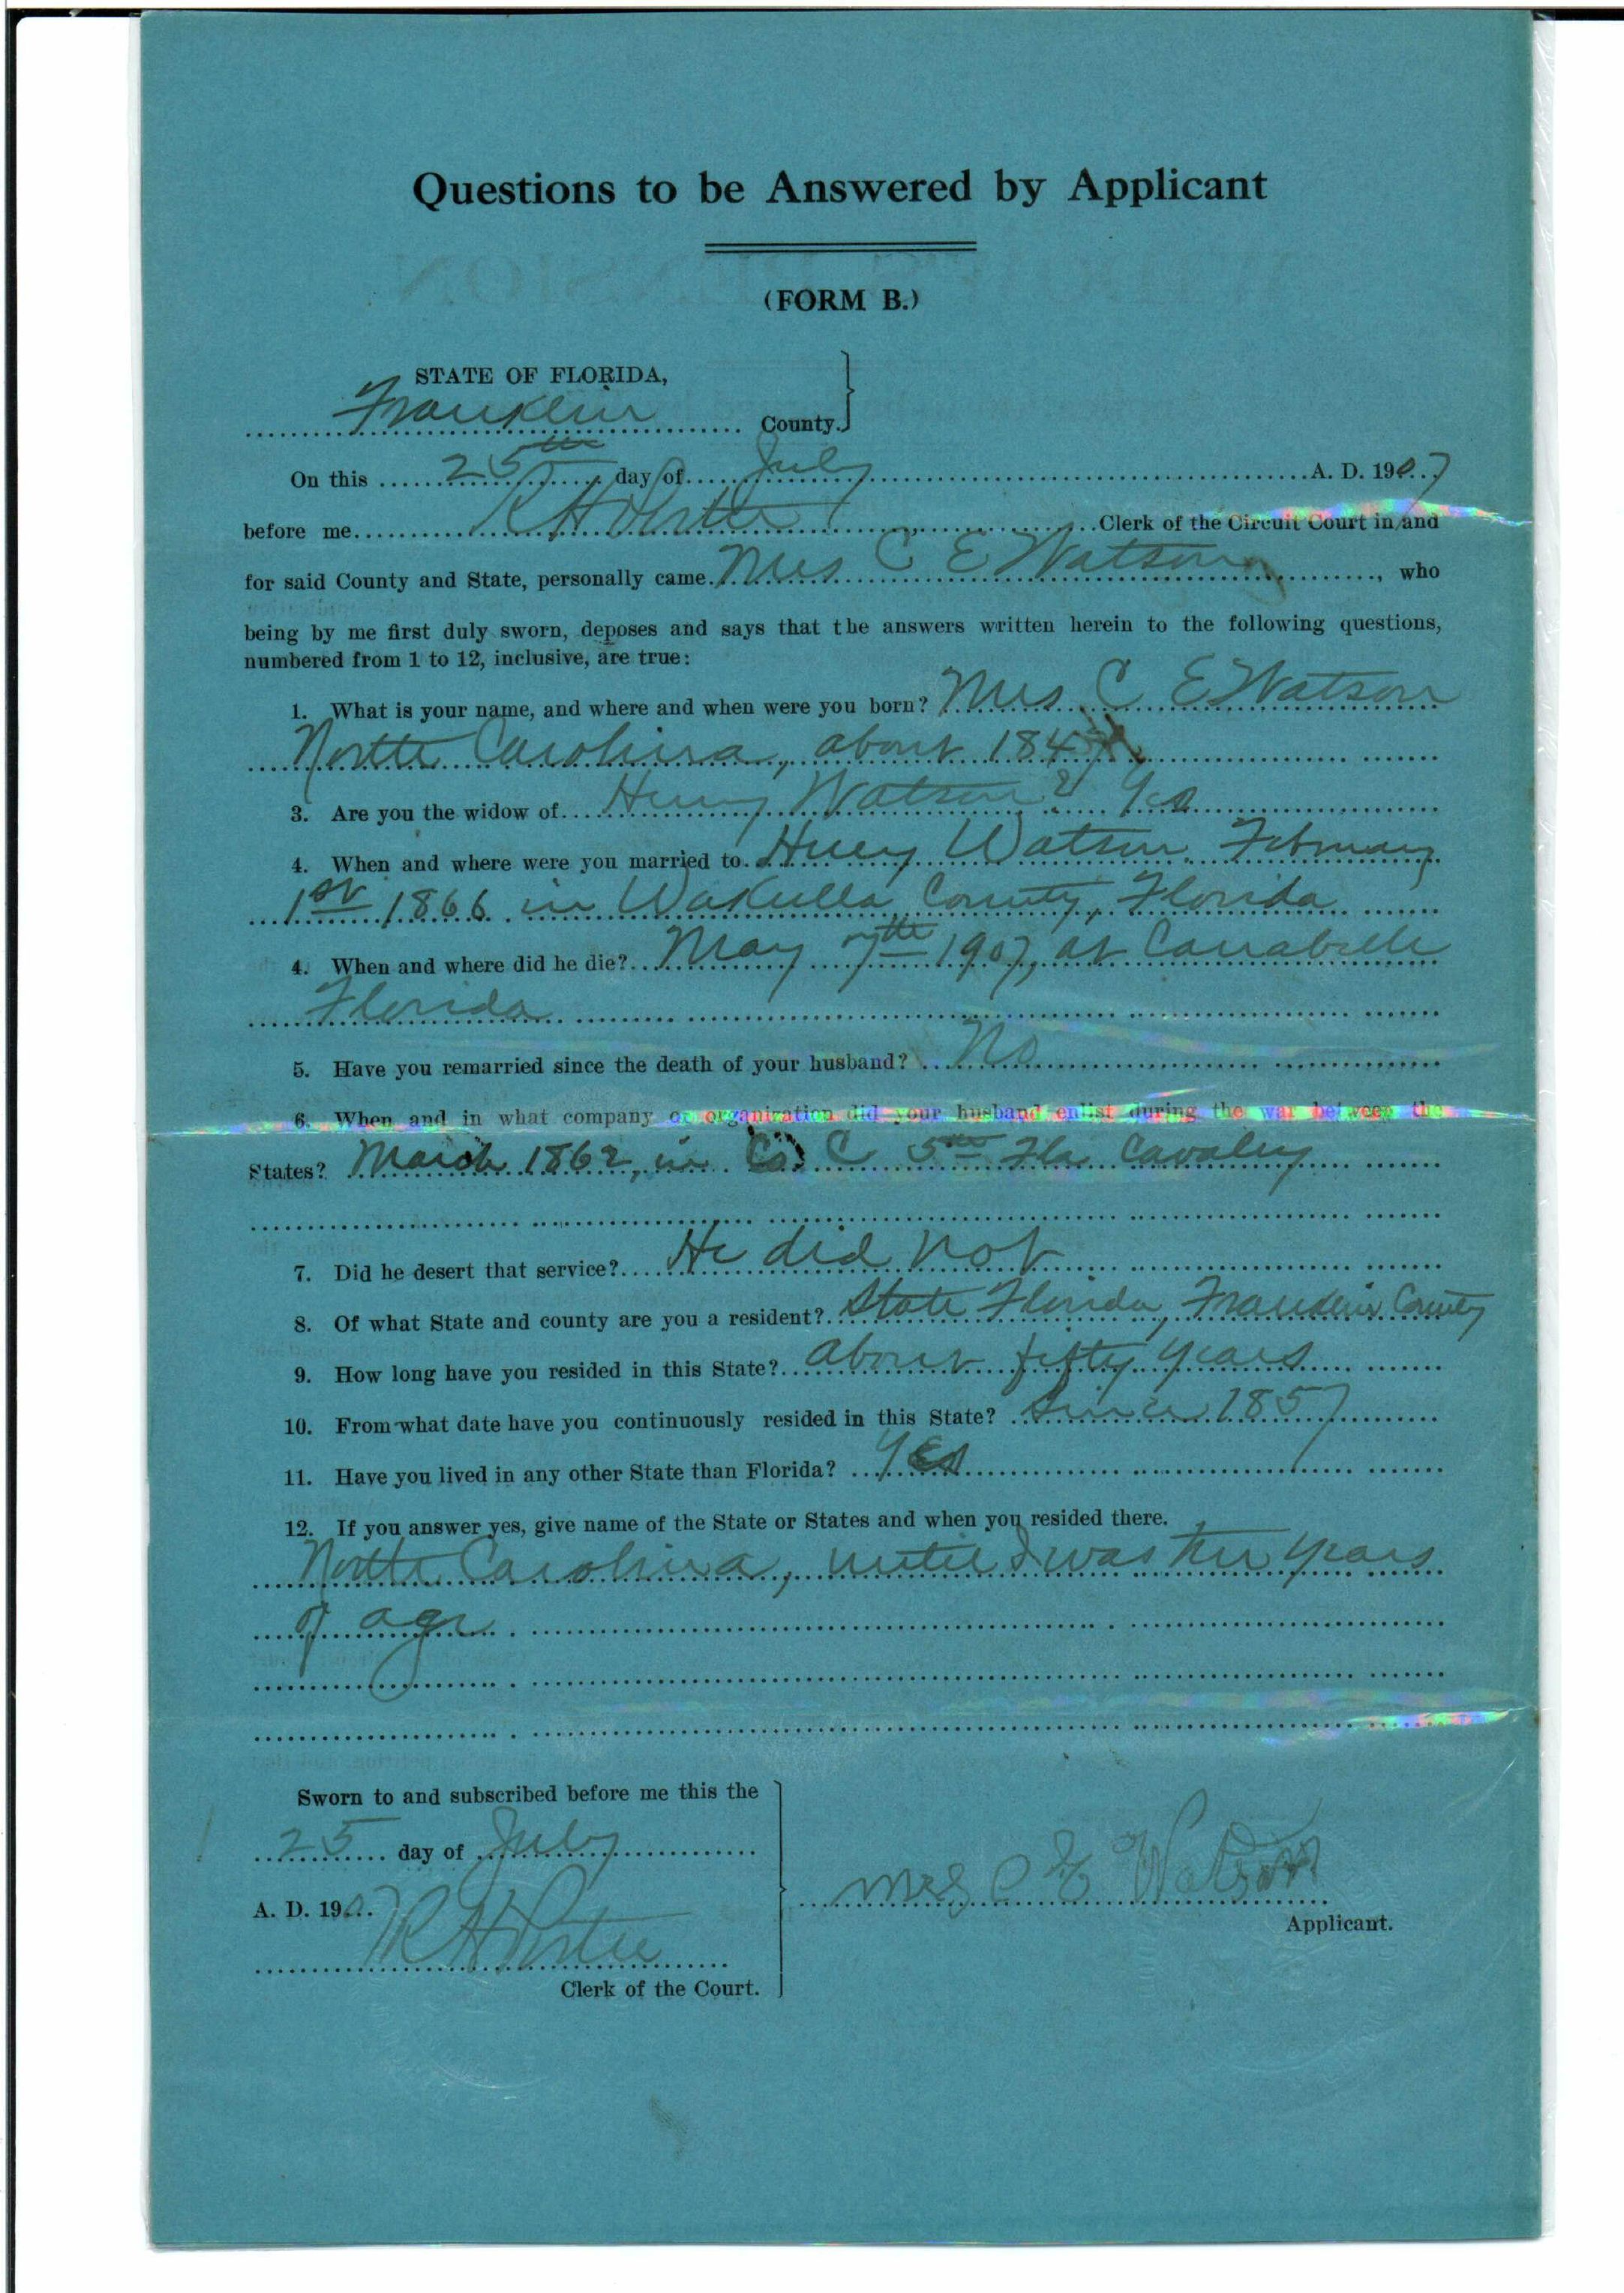 Questions to be Answered by Applicant
(FORM B.)
STATE OF FLORIDA,
Franklin County.
On this 25th day of July A. D. 1907
before me R H Porter Clerk of the Circuit Court in and
for said County and State, personally came Mrs C E Watson, who
being by me first duly sworn, deposes and says that the answers written herein to the following questions,
numbered from 1 to 12, inclusive, are true:
1. What is your name, and where and when were you born? Mrs C E Watson
North Carolina, about
3. Are you the widow of Henry Watson? Yes
4. When and where were you married to Henry Watson February
1st 1866 in Wakulla County, Florida
4. When and where did he die? May 7th 1907, at Carrabelle
Florida
5. Have you remarried since the death of your husband? No
6. When and in what company or organization did your husband enlist during the war between the
States? March 1862, in Co. C 5th Fla Cavalry
7. Did he desert that service? He did not
8. Of what State and county are you a resident? State Florida, Franklin County
9. How long have you resided in this State? About fifty years
10. From what date have you continuously resided in this State? Since 1857
11. Have you lived in any other State than Florida? Yes
12. If you answer yes, give name of the State or States and when you resided there.
North Carolina, until I was ten years
of age
Sworn to and subscribed before me this the
25 day of July
A. D. 1907
R H Porter
Clerk of the Court.
Mrs C E Watson
Applicant.